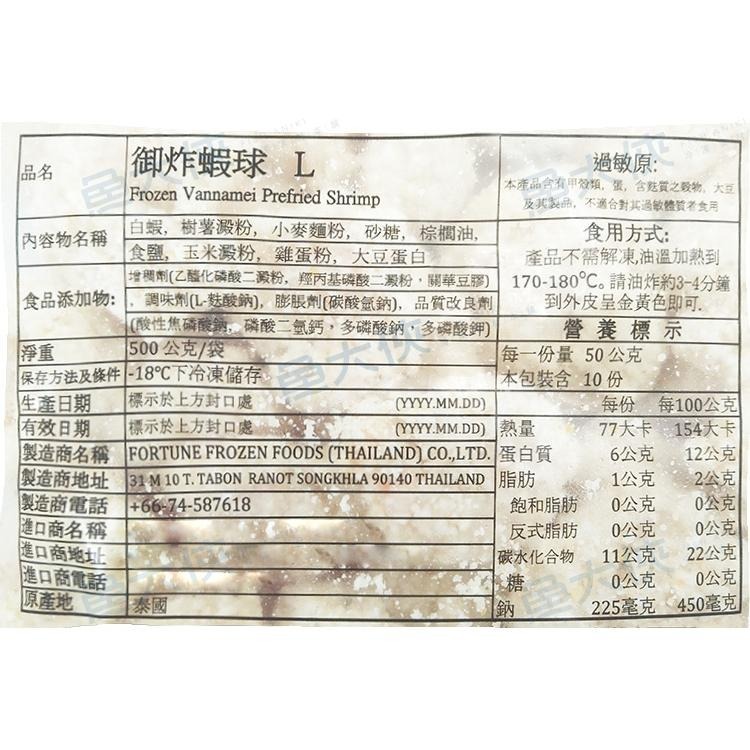 品名 御炸蝦球 L
Frozen Vannamei Prefried Shrimp
內容物名稱 白蝦, 樹薯澱粉, 小麥麵粉, 砂糖, 棕櫚油,
食鹽, 玉米澱粉, 雞蛋粉, 大豆蛋白
食品添加物: 增稠劑(乙醯化磷酸二澱粉, 羥丙基磷酸二澱粉, 關華豆膠)
, 調味劑(L-麩酸鈉), 膨脹劑(碳酸氫鈉), 品質改良劑
(酸性焦磷酸鈉, 磷酸二氫鈣, 多磷酸鈉, 多磷酸鉀)
淨重 500 公克/袋
保存方法及條件 -18℃下冷凍儲存
生產日期 標示於上方封口處 (YYYY.MM.DD)
有效日期 標示於上方封口處 (YYYY.MM.DD)
製造商名稱 FORTUNE FROZEN FOODS (THAILAND) CO.,LTD.
製造商地址 31 M 10 T. TABON RANOT SONGKHLA 90140 THAILAND
製造商電話 +66-74-587618
進口商名稱
進口商地址
進口商電話
原產地 泰國
過敏原:
本產品含有甲殼類, 蛋, 含麩質之穀物, 大豆
及其製品, 不適合對其過敏體質者食用
食用方式:
產品不需解凍,油溫加熱到
170-180℃。請油炸約3-4分鐘
到外皮呈金黃色即可.
營養標示
每一份量 50 公克
本包裝含 10 份
每份 每100公克
熱量 77大卡 154大卡
蛋白質 6公克 12公克
脂肪 1公克 2公克
飽和脂肪 0公克 0公克
反式脂肪 0公克 0公克
碳水化合物 11公克 22公克
糖 0公克 0公克
鈉 225毫克 450毫克
魚大俠